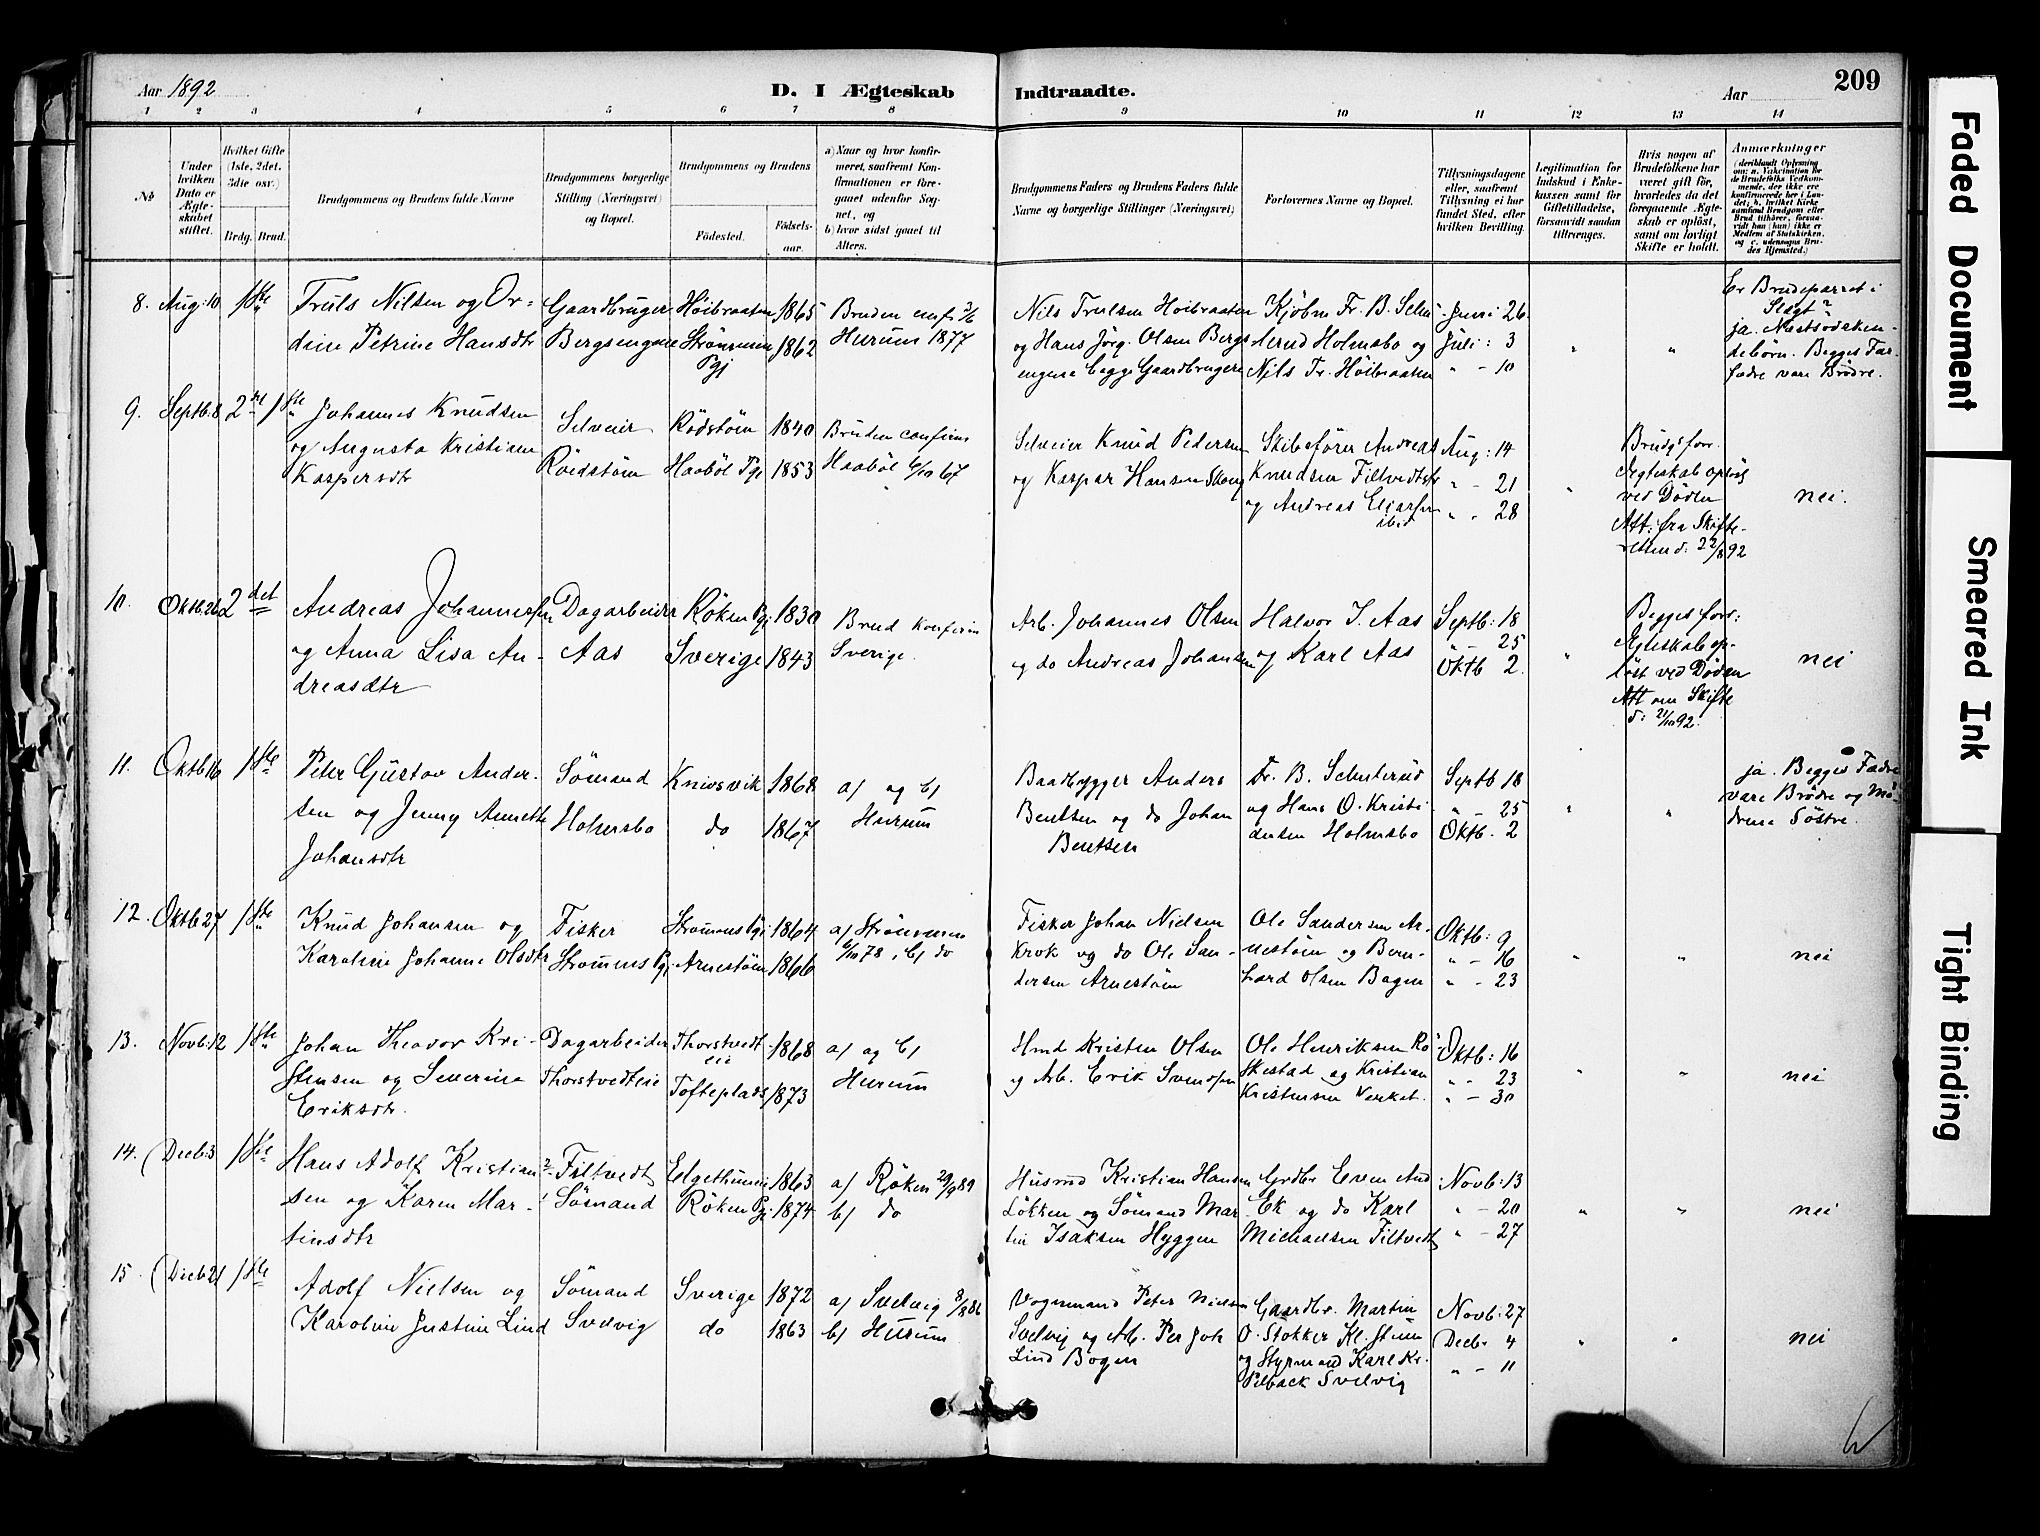 Aar 1892
D. I Ægteskab Indtraadte.
Aar
209
1 2 3 4 5 6 7 8 9 10 11 12 13 14
No
Under hvilken Dato er Ægteskabet stiftet.
Hvilket Gifte (1ste, 2det, 3die osv.)
Brdg. Brud.
Brudgommens og Brudens fulde Navne
Brudgommens borgerlige Stilling (Næringsvei) og Bopæl.
Brudgommens og Brudens
Fødested.
Fødselsaar.
a) Naar og hvor konfirmeret, saafremt Konfirmationen er foregaaet udenfor Sognet, og
b) hvor sidst gaaet til Alters.
Brudgommens Faders og Brudens Faders fulde Navne og borgerlige Stillinger (Næringsvei)
Forlovernes Navne og Bopæl.
Tillysningsdagene eller, saafremt Tillysning ei har fundet Sted, efter hvilken Bevilling.
Legitimation for Indskud i Enkekassen samt for Giftetilladelse, forsaavidt saadan tiltrænges.
Hvis nogen af Brudefolkene har været gift før, hvorledes da det foregaaende Ægteskab er opløst, samt om lovligt Skifte er holdt.
Anmerkninger
(deriblandt Oplysning om: a. Vakcination for de Brudefolks Vedkommende, der ikke ere konfirmerede her i Landet; b. hvilket Kirkesamfund Brudgom eller Brud tilhører, forsaavidt han (hun) ikke er Medlem af Statskirken, og c. udensogns Brudes Hjemsted.)
8. Aug: 10 1ste
Truls Nilsen og Or-
dine Petrine Hansdtr
Gaardbruger
Bergsengene
Høibraaten 1865
Strømmen 1862
Pgj
Bruden
Hurum 1877
Nils Trulsen Høibraaten
og Hans Jørg. Olsen Bergs
engene begge Gaardbrugere
Kjøbm Fr. B.
Holmsbo og
Nils Tr. Høibraaten
Juni 26
Juli: 3
" - 10
Er Brudeparret i
Slægt?
ja. Næstsødsken-
debørn. Begges Far-
fædre vare Brødre.
9. Septb. 8 2det 1ste
Johannes Knudsen
og Augusta Kristiane
Kaspersdtr
Selveier
Rødstøm
Rødstøm 1840
Haabøl Pgj 1853
Bruden confirm
Haabøl 6/10 67
Selveier Knud Pedersen
og Kaspar Hansen
Skibsfører Andreas
Knudsen Filtvedt
og Andreas
ibid
Aug: 14
" - 21
" " 28
Brudg's forr.
Ægteskab opløst
ved Døden
Att: fra Skifte-
retten d. 22/8 92
nei.
10. Oktb. 26 2det
Andreas Johannessen
og Anna Lisa An-
dreasdtr
Dagarbeider
Aas
Røken Pgj 1830
Sverige 1843
Brud Konfirm
Sverige.
Arb. Johannes Olsen
og do Andreas Johansen
Halvor J. Aas
og Karl Aas
Septb: 18
" - 25
Oktb 2
Begges forr:
Ægteskab op-
løst ved Døden
Att om Skifte
d: 21/10 92
nei
11. Oktb 16 1ste
Peter Gustav Ander-
sen og Jenny Annette
Johansdtr
Sømand
Holmsbo
Knivsvik 1868
do 1867
a) og b)
Hurum
Baadbygger Anders
Bentsen og do Johan
Bentsen
Fr. B.
og Hans O. Kristi-
ansen Holmsbo
Septb 18
" - 25
Oktb. 2
ja. Begges Fædre
vare Brødre og Mø-
drene Søstre.
12. Oktb 27 1ste
Knud Johansen og
Karoline Johanne Olsdtr
Fisker
Strømms Pgj
Strømms Pgj 1864
Arnestøm 1866
a) Strømmen
6/10 78, b) do
Fisker Johan Nielsen
Krok og do Ole San-
dersen Arnestøm
Ole Sandersen Ar-
nestøm og Bern-
hard Olsen Bogen
Oktb: 9
" - 16
" - 23
nei
13. Novb. 12 1ste
Johan Theodor Kri-
stensen og Severine
Eriksdtr.
Dagarbeider
Thorstvedteie
Thorstvedt- 1868
eie
Tofteplads 1873
a) og b)
Hurum
Hmd Kristen Olsen
og Arb. Erik Svendsen
Ole Henriksen Rø
skestad og Kristian
Kristensen Verket.
Oktb: 16
" - 23
" - 30
nei
14. Decb. 3 1ste
Hans Adolf Kristian-
sen og Karen Mar-
tinsdtr
Filtvedt
Sømand
1863
Røken Pgj 1874
a) Røken 29/9 89
b) do
Husmd Kristian Hansen
Løkken og Sømand Mar-
tin Isaksen Hyggen
Grdbr Even And
Ek og do Karl
Michaelsen Filtvedt
Novb: 13
" - 20
" - 27
nei
15 Decb. 21 1ste
Adolf Nielsen og
Karoline Justine Lind
Sømand
Svelvig
Sverige 1872
do 1863
a) Svelvig 8/8 86
b) Hurum
Vognmand Peter Nielsen
Svelvig og Arb. Per Joh
Lind Bogen
Gaardbr. Martin
O. Stokker Kl.
og Styrmand Karl Kr.
Pilback Svelvig
Novb: 27
Decb. 4
" - 11
nei
Faded Document
Smeared Ink
Tight Binding